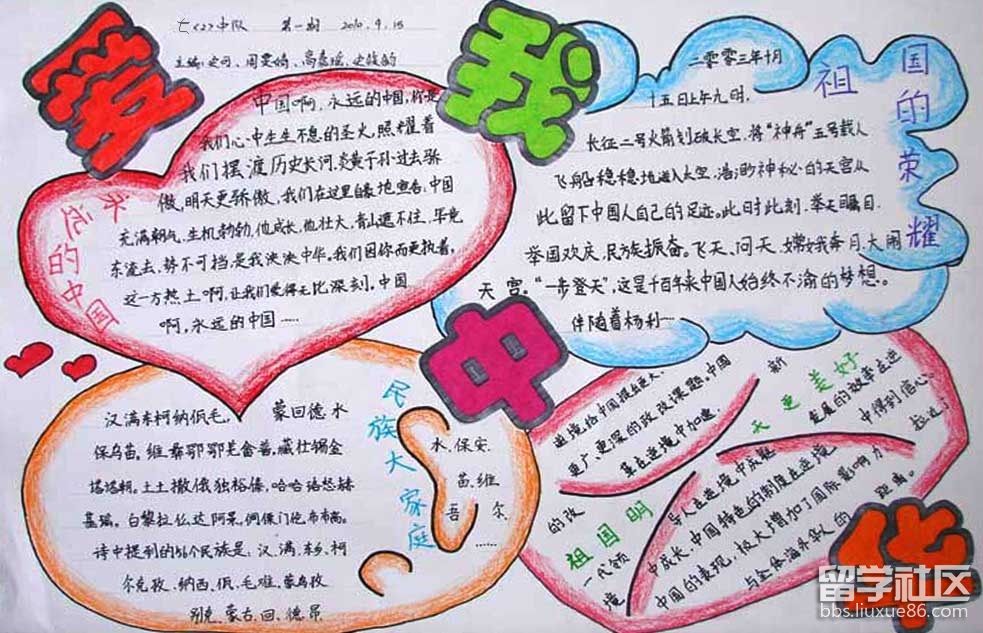 七〈2〉中队 第一期 2010.9.15
爱
我
中
华
永远的中国
中国啊,永远的中国,你是
我们心中生生不息的圣火,照耀着
我们摆渡历史长河.炎黄子孙过去骄
傲,明天更骄傲,我们在这里自豪地宣告.中国
充满朝气,生机勃勃,他成长,他壮大,青山遮不住,毕竟
东流去,势不可挡,是我泱泱中华,我们因你而更执着,
这一方热土啊,让我们爱得无比深刻,中国
啊,永远的中国……
祖国的荣耀
二零零三年十月
十五日上午九时,
长征二号火箭划破长空,将“神舟”五号载人
飞船稳稳地送入太空.浩渺神秘的天宫从
此留下中国人自己的足迹。此时此刻,举天瞩目.
举国欢庆,民族振奋。飞天、问天、嫦娥奔月、大闹
天宫。“一步登天”,这是千百年来中国人始终不渝的梦想。
伴随着杨利…
民族大家庭
汉满东柯纳佤毛, 蒙回德水
塔塔朝。土土撒俄独裕傣,哈哈
诗中提到的56个民族是:汉、满、东乡、柯
尔克孜、纳西、佤、毛难、
蒙古、回、德昂
水、保安、
苗、维
吾 尔
……
祖国明天更美好
更广、更深的改
革在逆境中加速.
新
发展的故事在逆
中得到信心、
拉近了
的改
一代领
境
导人在逆境中成熟
中成长、中国特色的制度在逆境
中国的表现,极大增加了国际影响力
与全体海外华人的
距离。
留学社区
bbs.liuxue86.com